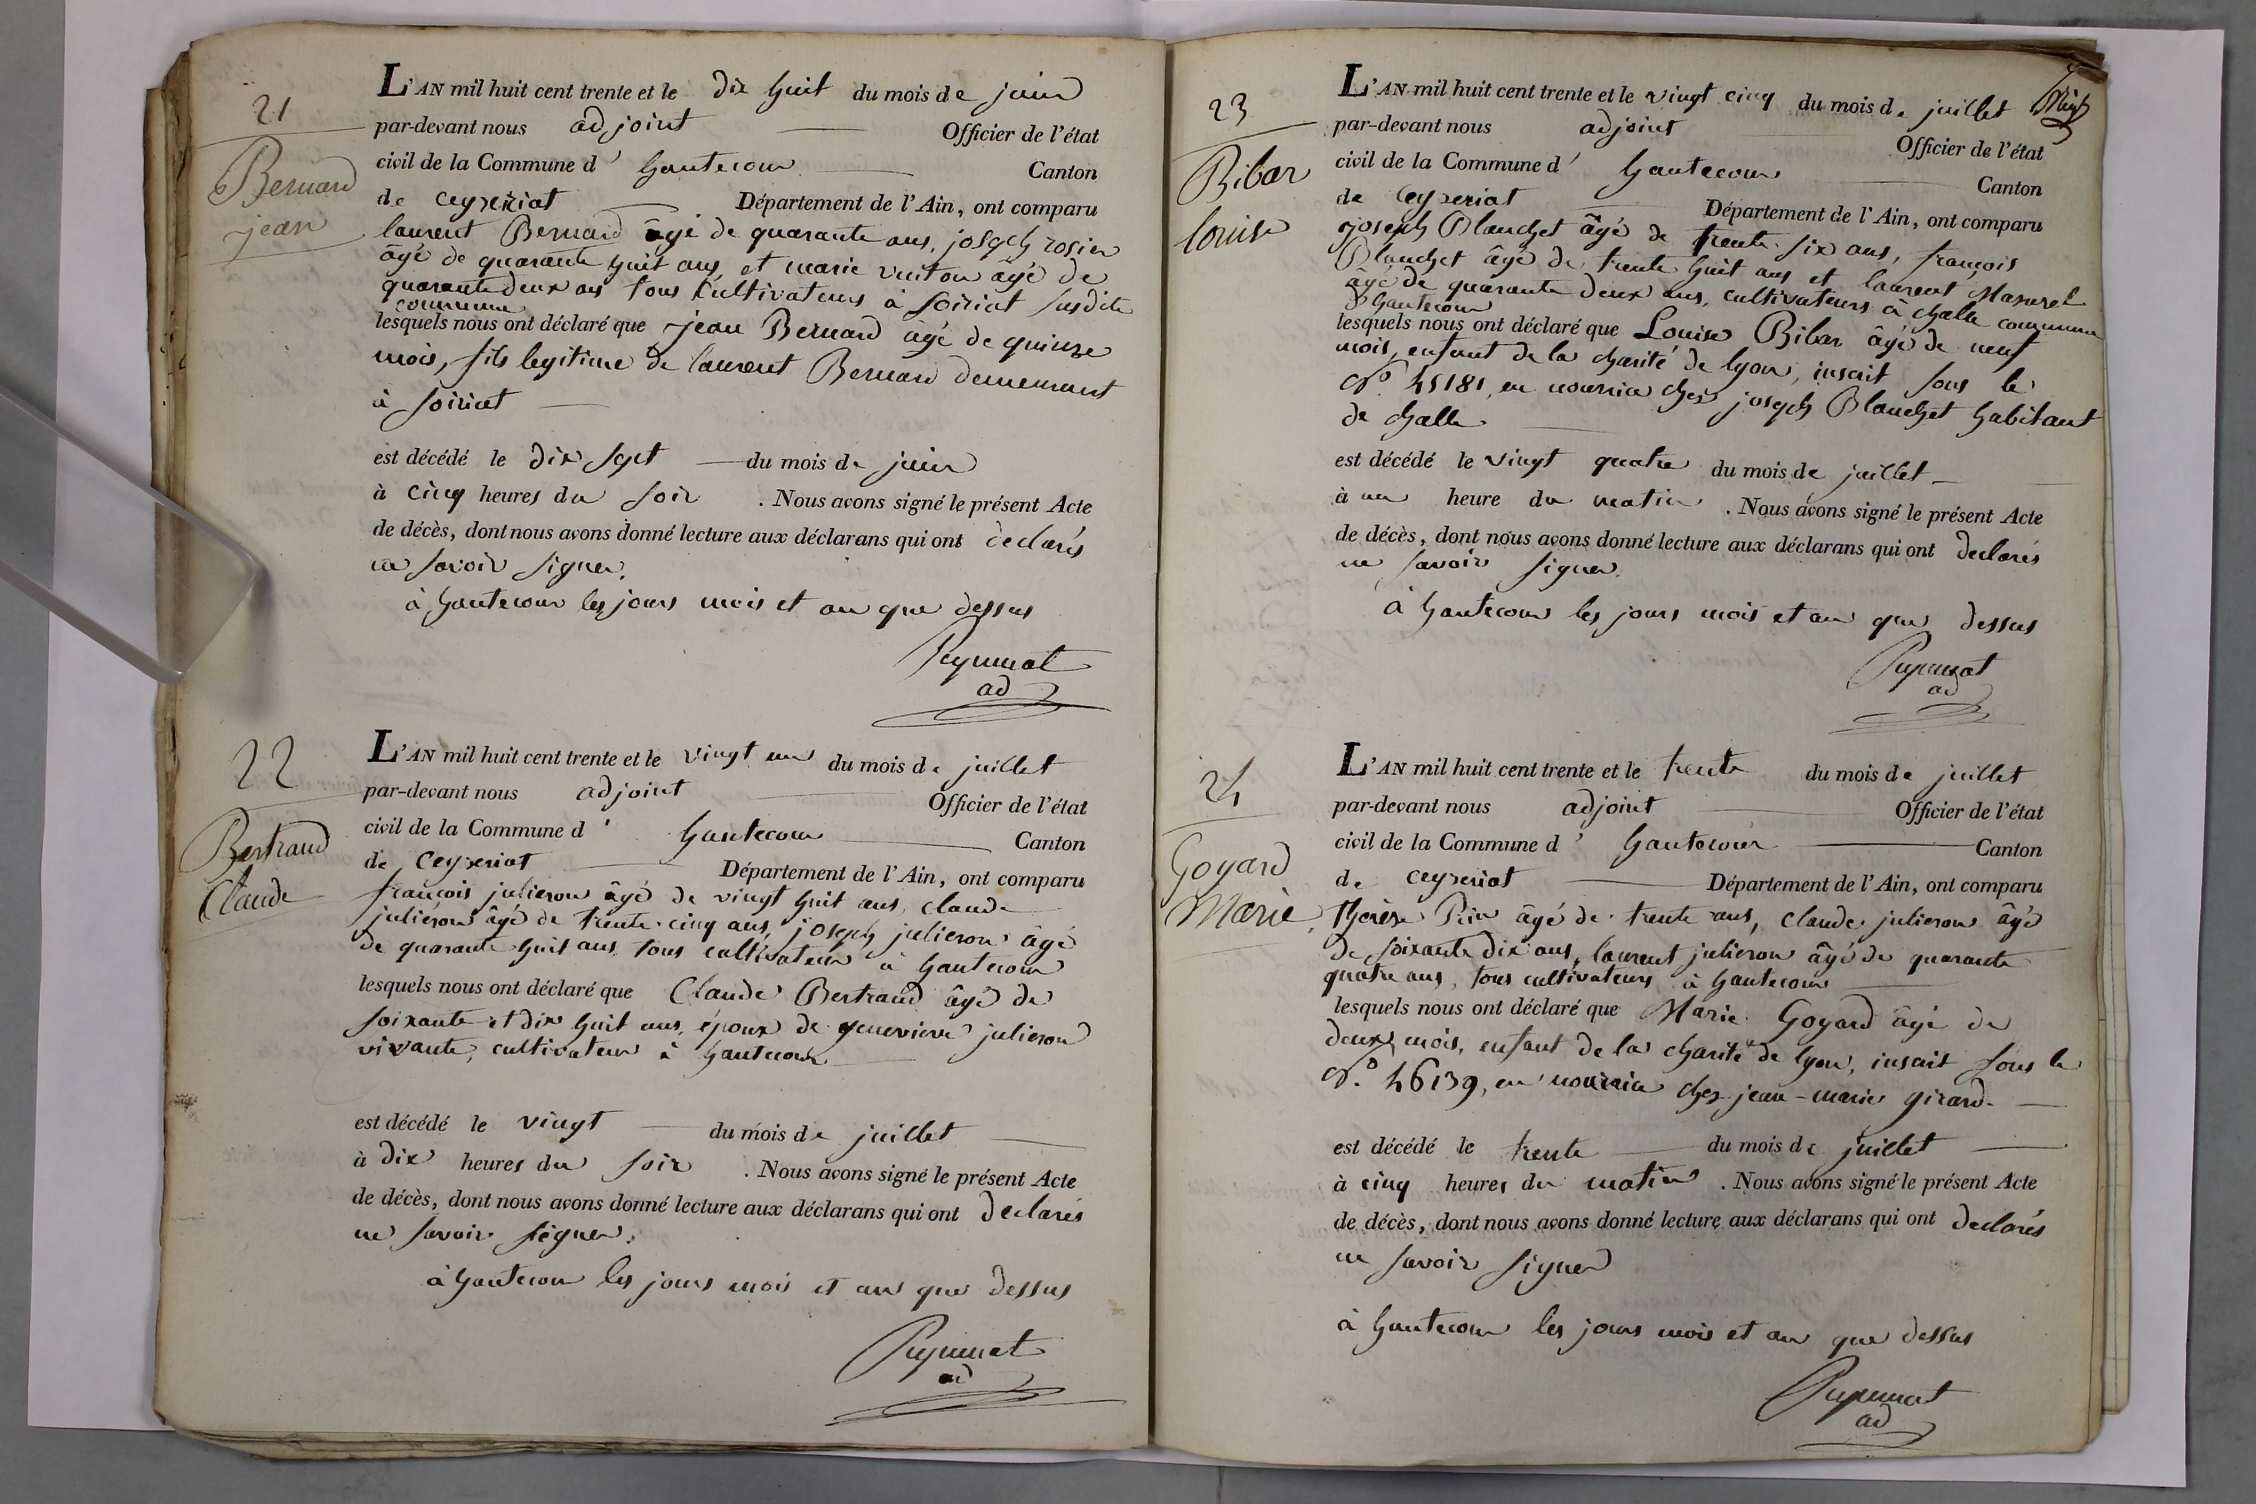 21
Bernard
jean
L'AN mil huit cent trente et le dix huit du mois de juin
par-devant nous adjoint Officier de l'état
civil de la Commune d' hautecour Canton
de ceyzeriat Département de l'Ain, ont comparu
laurent Bernard âgé de quarante ans, joseph rosier
âgé de quarante huit ans, et marie vuiton âgé de
quarante deux ans tous cultivateurs à soiriat susdite
commune
lesquels nous ont déclaré que jean Bernard âgé de quinze
mois, fils legitime de laurent Bernard demeurant
à soiriat
est décédé le dix sept du mois de juin
à cinq heures du soir . Nous avons signé le présent Acte
de décès, dont nous avons donné lecture aux déclarans qui ont declarés
ne savoir signer.
à hautecour les jours mois et an que dessus
ad
22
Bertrand
Claude
L'AN mil huit cent trente et le vingt un du mois de juillet
par-devant nous adjoint Officier de l'état
civil de la Commune d' hautecour Canton
de ceyzeriat Département de l'Ain, ont comparu
françois julieron âgé de vingt huit ans, claude
julieron âgé de trente cinq ans, joseph julieron âgé
de quarante huit ans tous cultivateurs à hautecour
lesquels nous ont déclaré que Claude Bertrand âgé de
soixante et dix huit ans, époux de genevieve julieron
vivante, cultivateur à hautecour
est décédé le vingt du mois de juillet
à dix heures du soir . Nous avons signé le présent Acte
de décès, dont nous avons donné lecture aux déclarans qui ont declarés
ne savoir signer.
à hautecour les jours mois et an que dessus
ad
23
Bibar
louise
L'AN mil huit cent trente et le vingt cinq du mois de juillet
par-devant nous adjoint Officier de l'état
civil de la Commune d' hautecour Canton
de ceyzeriat Département de l'Ain, ont comparu
joseph Blanchet âgé de trente six ans, françois
Blanchet âgé de trente huit ans et laurent Mazurel
âgé de quarante deux ans, cultivateurs à challe commune
d'hautecour
lesquels nous ont déclaré que Louise Bibar âgé de neuf
mois, enfant de la charité de lyon, inscrit sous le
N.º 45181, en nourrice chez joseph Blanchet habitant
de challe
est décédé le vingt quatre du mois de juillet
à un heure du matin . Nous avons signé le présent Acte
de décès, dont nous avons donné lecture aux déclarans qui ont declarés
ne savoir signer.
à hautecour les jours mois et an que dessus
ad
24
Goyard
Marie
L'AN mil huit cent trente et le trente du mois de juillet
par-devant nous adjoint Officier de l'état
civil de la Commune d' hautecour Canton
de ceyzeriat Département de l'Ain, ont comparu
thérèse âgé de trente ans, claude julieron âgé
de soixante dix ans, laurent julieron âgé de quarante
quatre ans, tous cultivateurs à hautecour
lesquels nous ont déclaré que Marie Goyard âgé de
deux mois, enfant de la charité de lyon, inscrit sous le
N.º 46139, en nourrice chez jean-marie girard
est décédé le trente du mois de juillet
à cinq heures du matin . Nous avons signé le présent Acte
de décès, dont nous avons donné lecture aux déclarans qui ont declarés
ne savoir signer
à hautecour les jours mois et an que dessus
ad